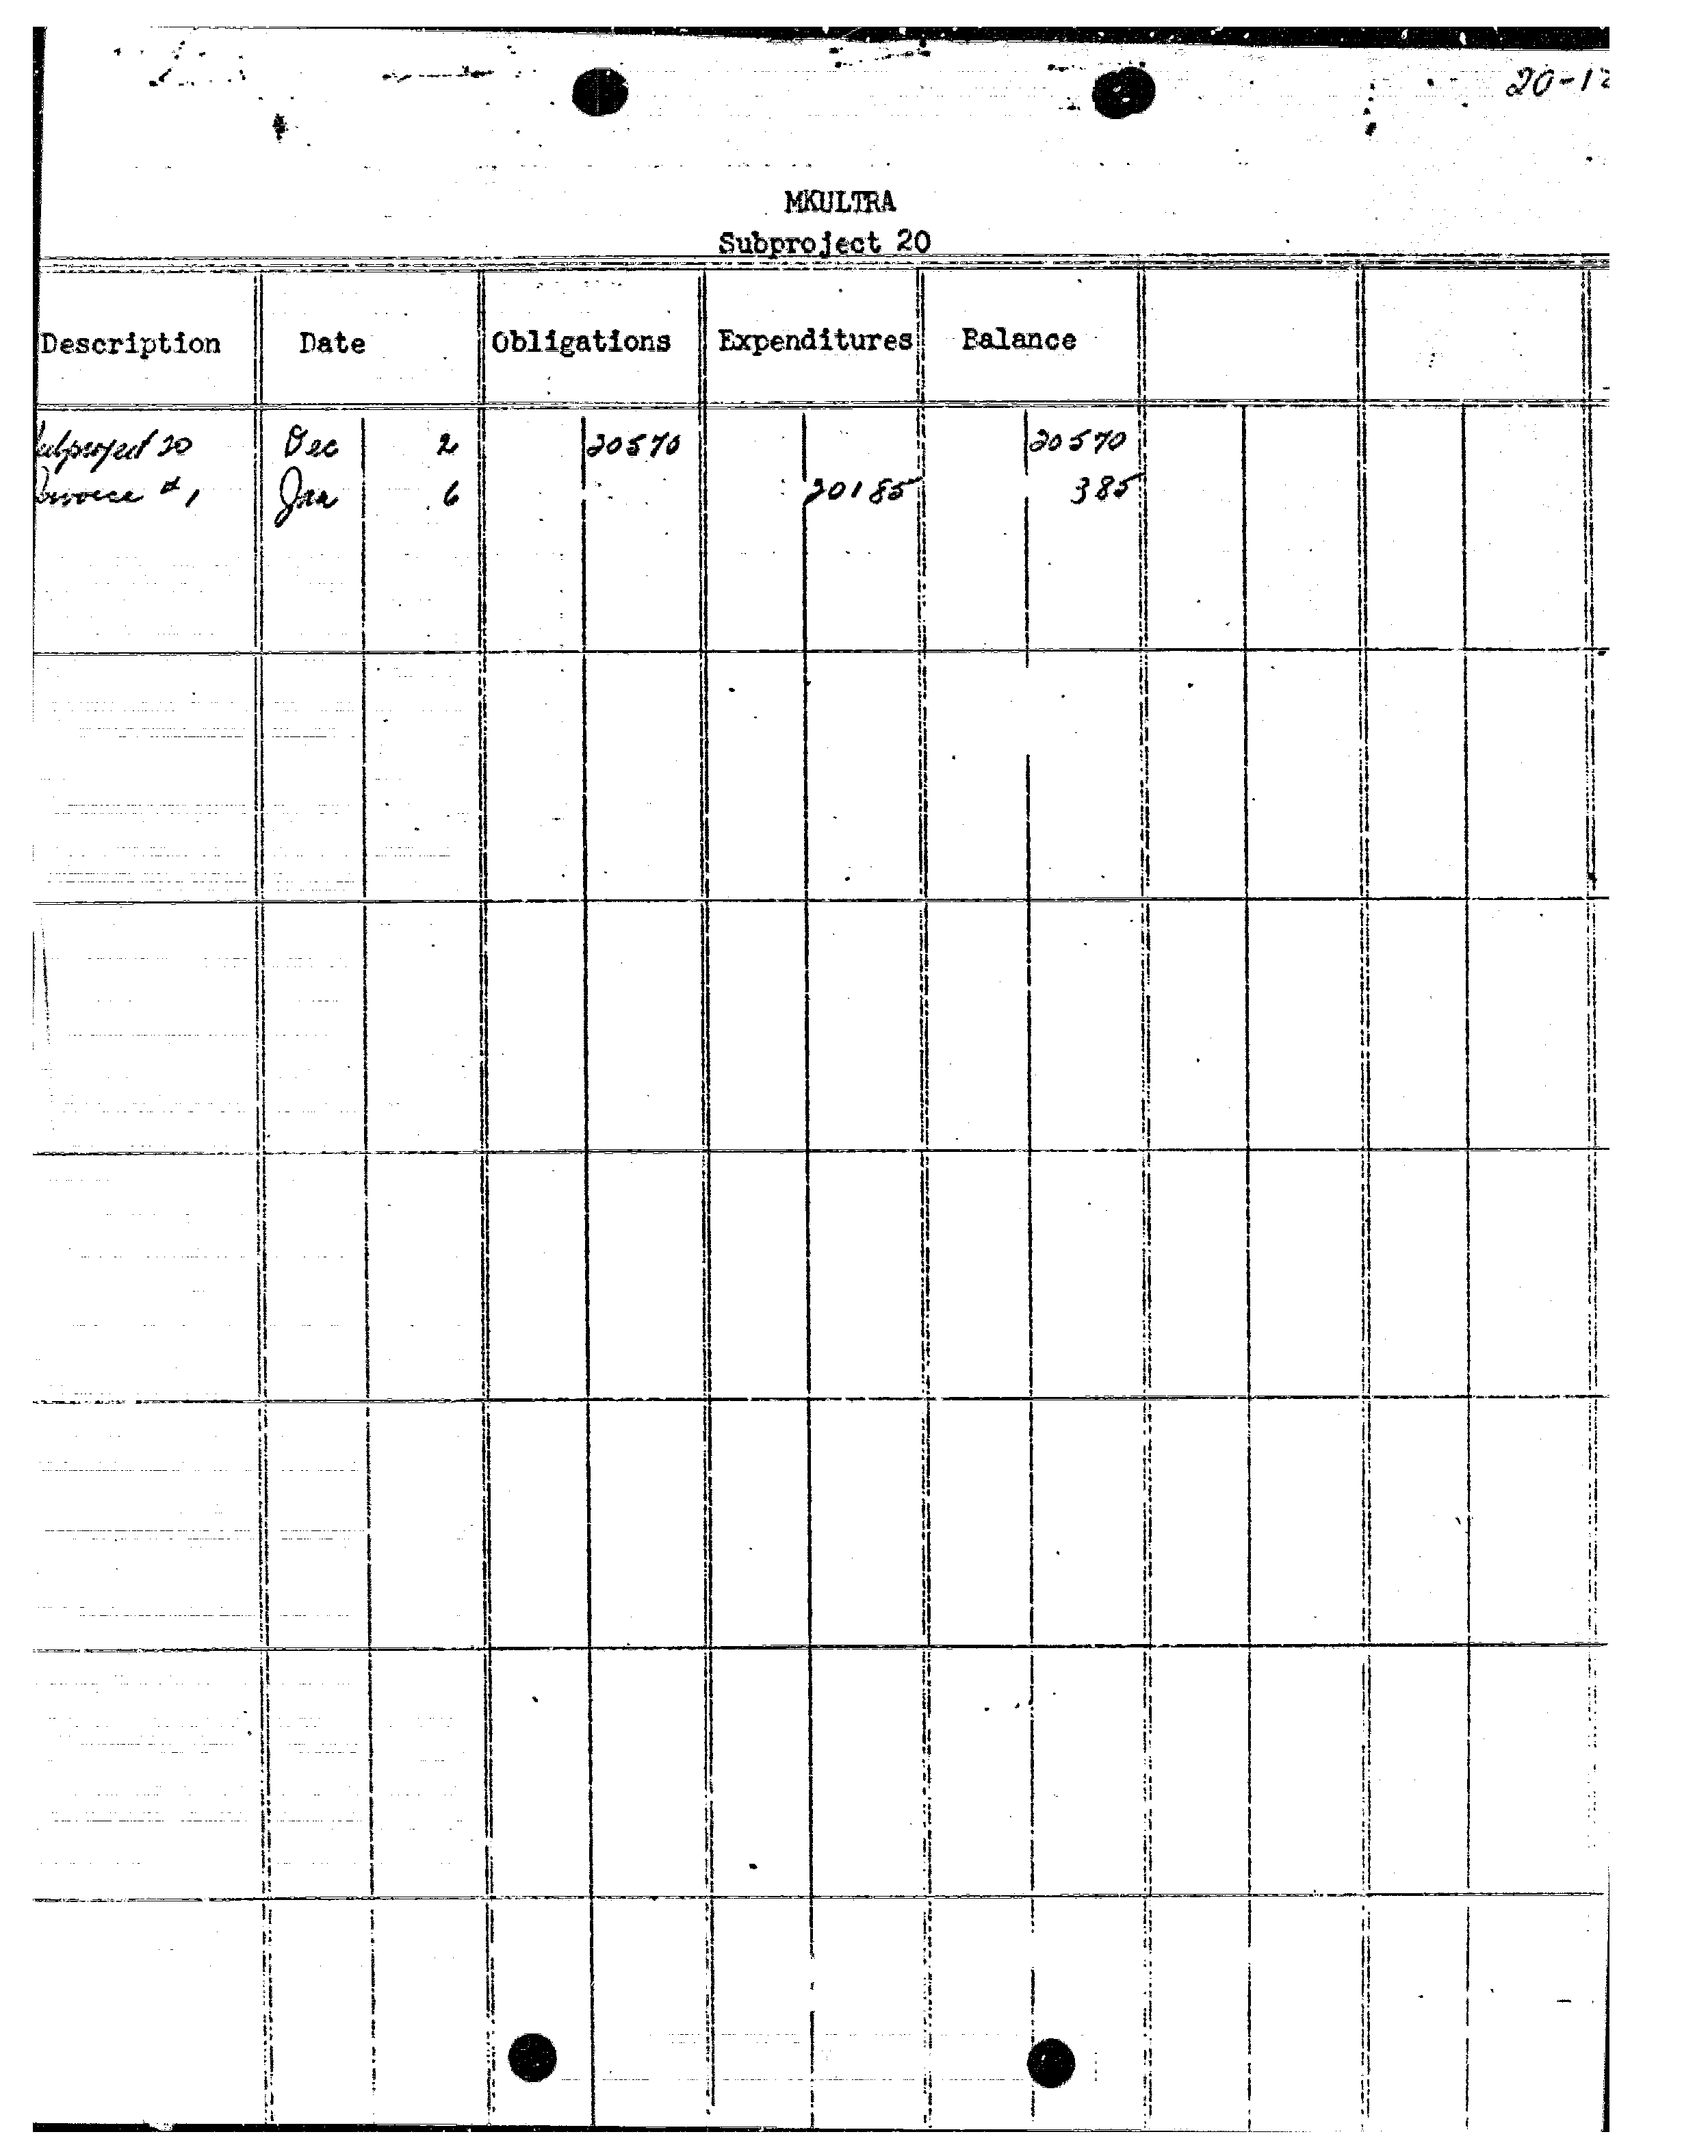 20-12
MKULTRA
Subproject 20
Description Date Obligations Expenditures Balance
Subproject 20 Dec 2 20570 20570
Invoice #1 Jan 6 20185 385